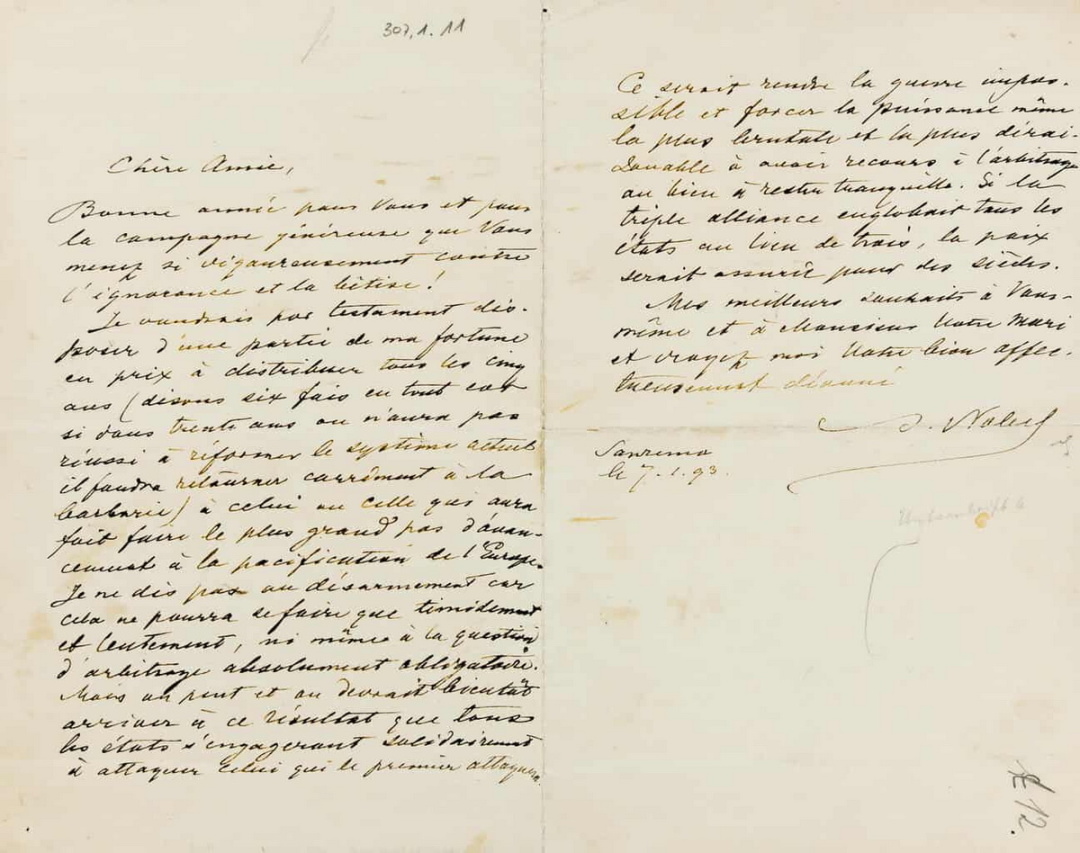 307.1.11
Chère Amie,
Bonne année pour Vous et pour
la campagne généreuse que Vous
menez si vigoureusement contre
l'ignorance et la bêtise!
Je voudrais par testament dis-
poser d'une partie de ma fortune
en prix à distribuer tous les cinq
ans (disons six fois en tout car
si dans trente ans on n'aura pas
réussi à réformer le système actuel
il faudra retourner carrément à la
barbarie) à celui ou celle qui aura
fait faire le plus grand pas d'avan-
cement à la pacification de l'Europe.
Je ne dis pas au désarmement car
cela ne pourra se faire que timidement
et lentement, ni même à la question
d'arbitrage absolument obligatoire.
Mais on peut et on devrait bientôt
arriver à ce résultat que tous
les états s'engageront solidairement
à attaquer celui qui le premier attaquera.
Ce serait rendre la guerre impos-
sible et forcer la puissance même
la plus brutale et la plus dérai-
sonnable à avoir recours à l'arbitrage
ou bien à rester tranquille. Si la
triple alliance englobait tous les
états au lieu de trois, la paix
serait assurée pour des siècles.
Mes meilleurs souhaits à Vous-
même et à Monsieur Votre Mari
et croyez moi Votre bien affec-
tueusement dévoué
A. Nobel
Sanremo
le 7.1.93.
12.